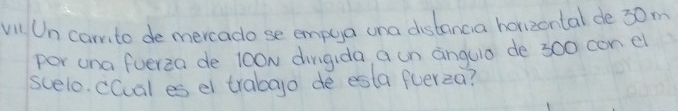 VII Un carrito de mercado se empuja una distancia horizontal de 30m
por una fuerza de 100N dirigida, a un angulo de 300 con el
suelo. ¿Cual es el trabajo de esta fuerza?